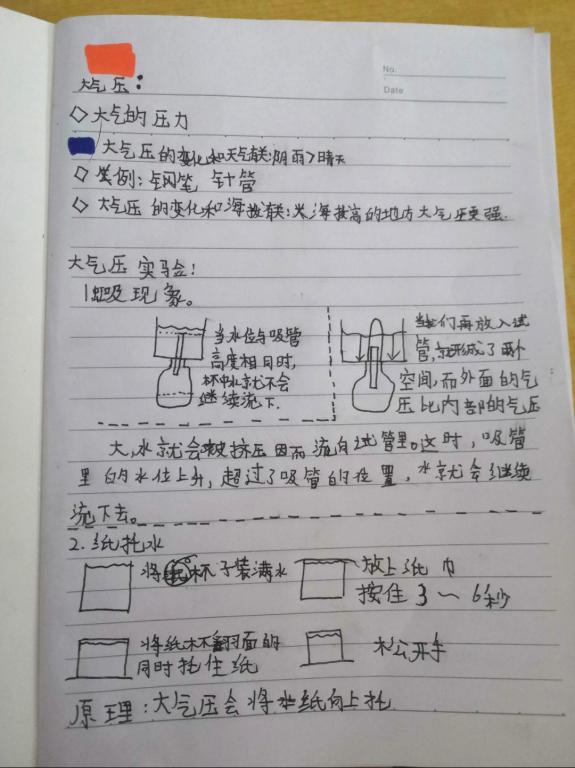 No.
Date
大气压:
◇大气的压力
大气压的变化和天气有关:阴雨>晴天
◇类例:钢笔 针管
◇大气压的变化和海拔有关:海拔高的地方大气压更强.
大气压实验!
1虹吸现象。
当水位与吸管
高度相同时,
杯中水就不会
继续流下.
当我们再放入试
管,就形成了两个
空间,而外面的气
压比内部的气压
大,水就会被挤压因而流向试管里。这时,吸管
里的水位上升,超过了吸管的位置,水就会继续
流下去。
2.纸托水
将杯子装满水
放上纸巾
按住3~6秒
将纸杯翻面的
同时托住纸
松开手
原理:大气压会将纸向上托